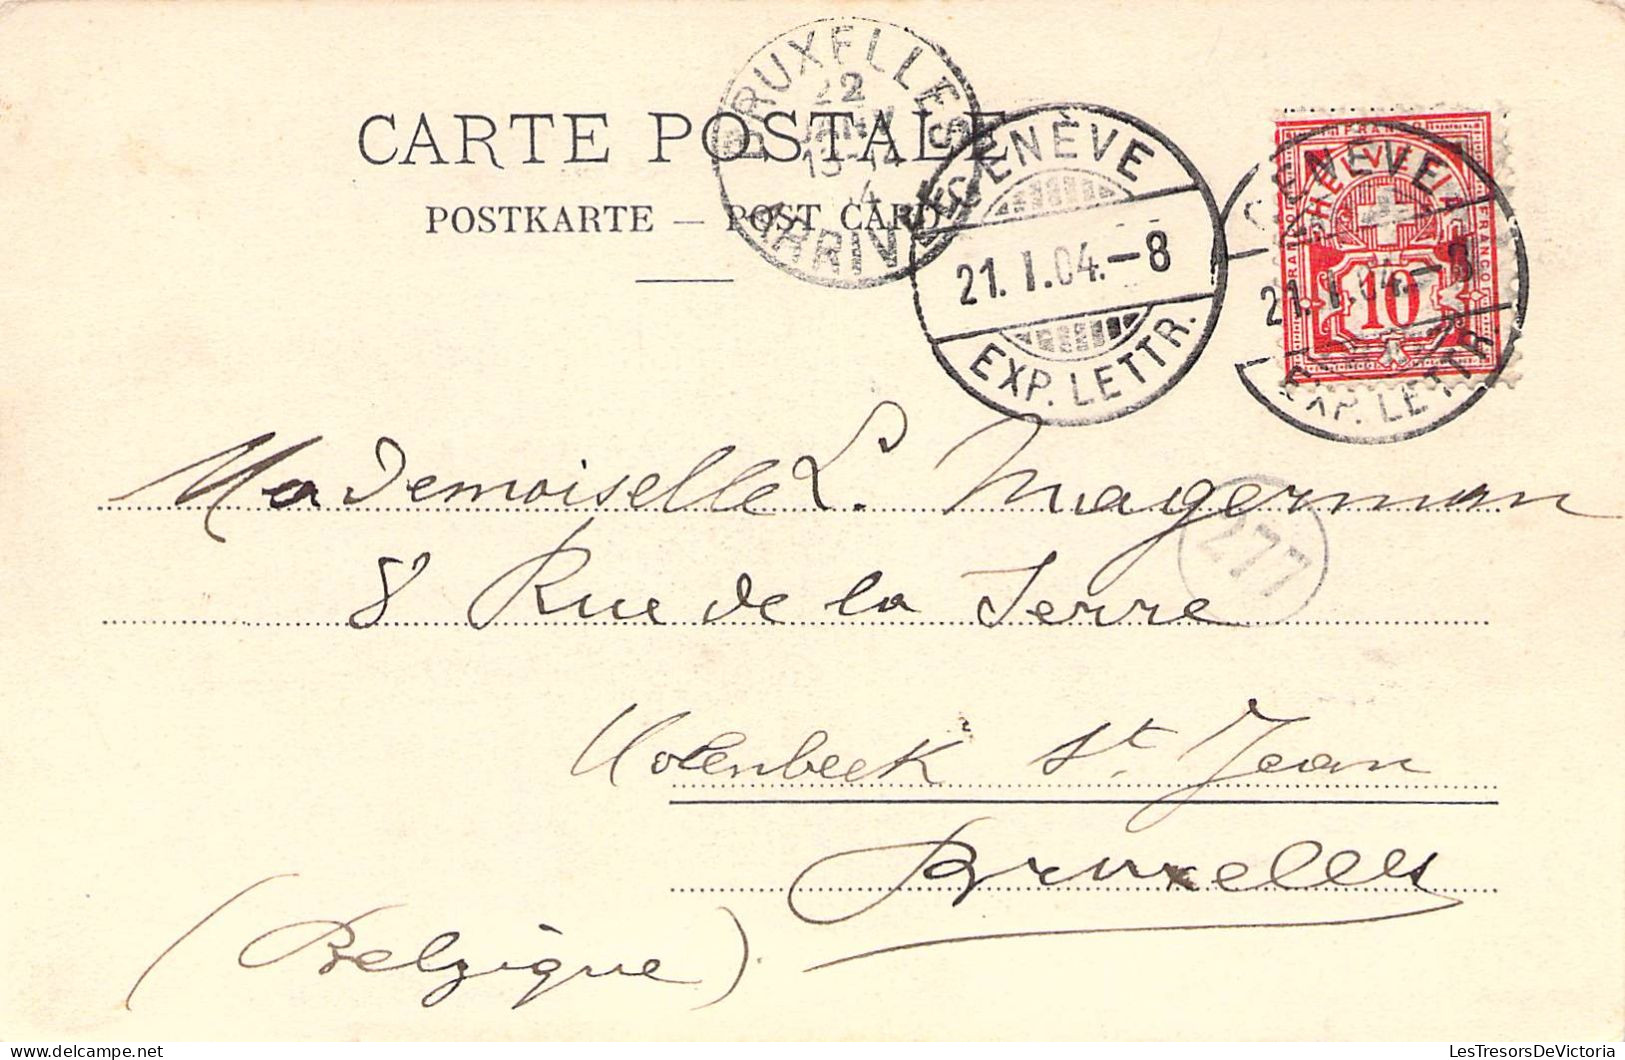 CARTE POSTALE
POSTKARTE — POST CARD
BRUXELLES
22
JANV
13-14
4
ARRIVÉE
GENÈVE
21.I.04.-8
EXP. LETTR.
GENÈVE
21.I.04.-8
EXP. LETTR.
FRANCO
HELVETIA
FRANCO
FRANCO
10
Mademoiselle L. Magerman
277
8 Rue de la Serre
Molenbeek St. Jean
Bruxelles
(Belgique)
LesTresorsDeVictoria